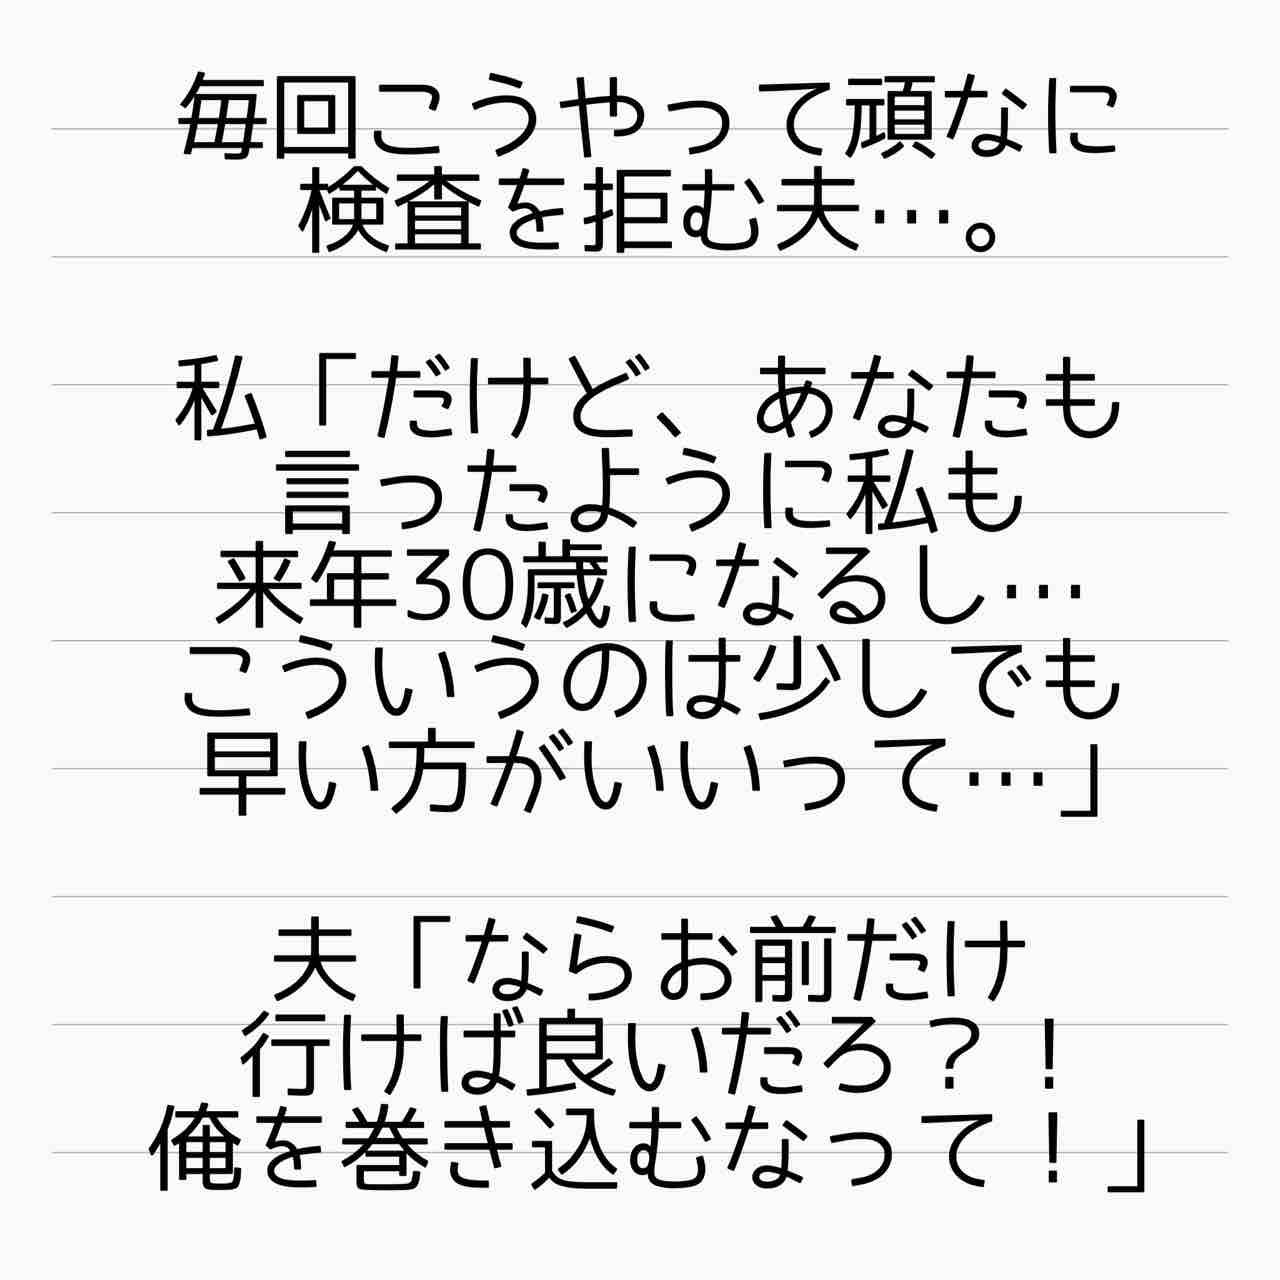 毎回こうやって頑なに
検査を拒む夫…。
私「だけど、あなたも
言ったように私も
来年30歳になるし…
こういうのは少しでも
早い方がいいって…」
夫「ならお前だけ
行けば良いだろ？！
俺を巻き込むなって！」